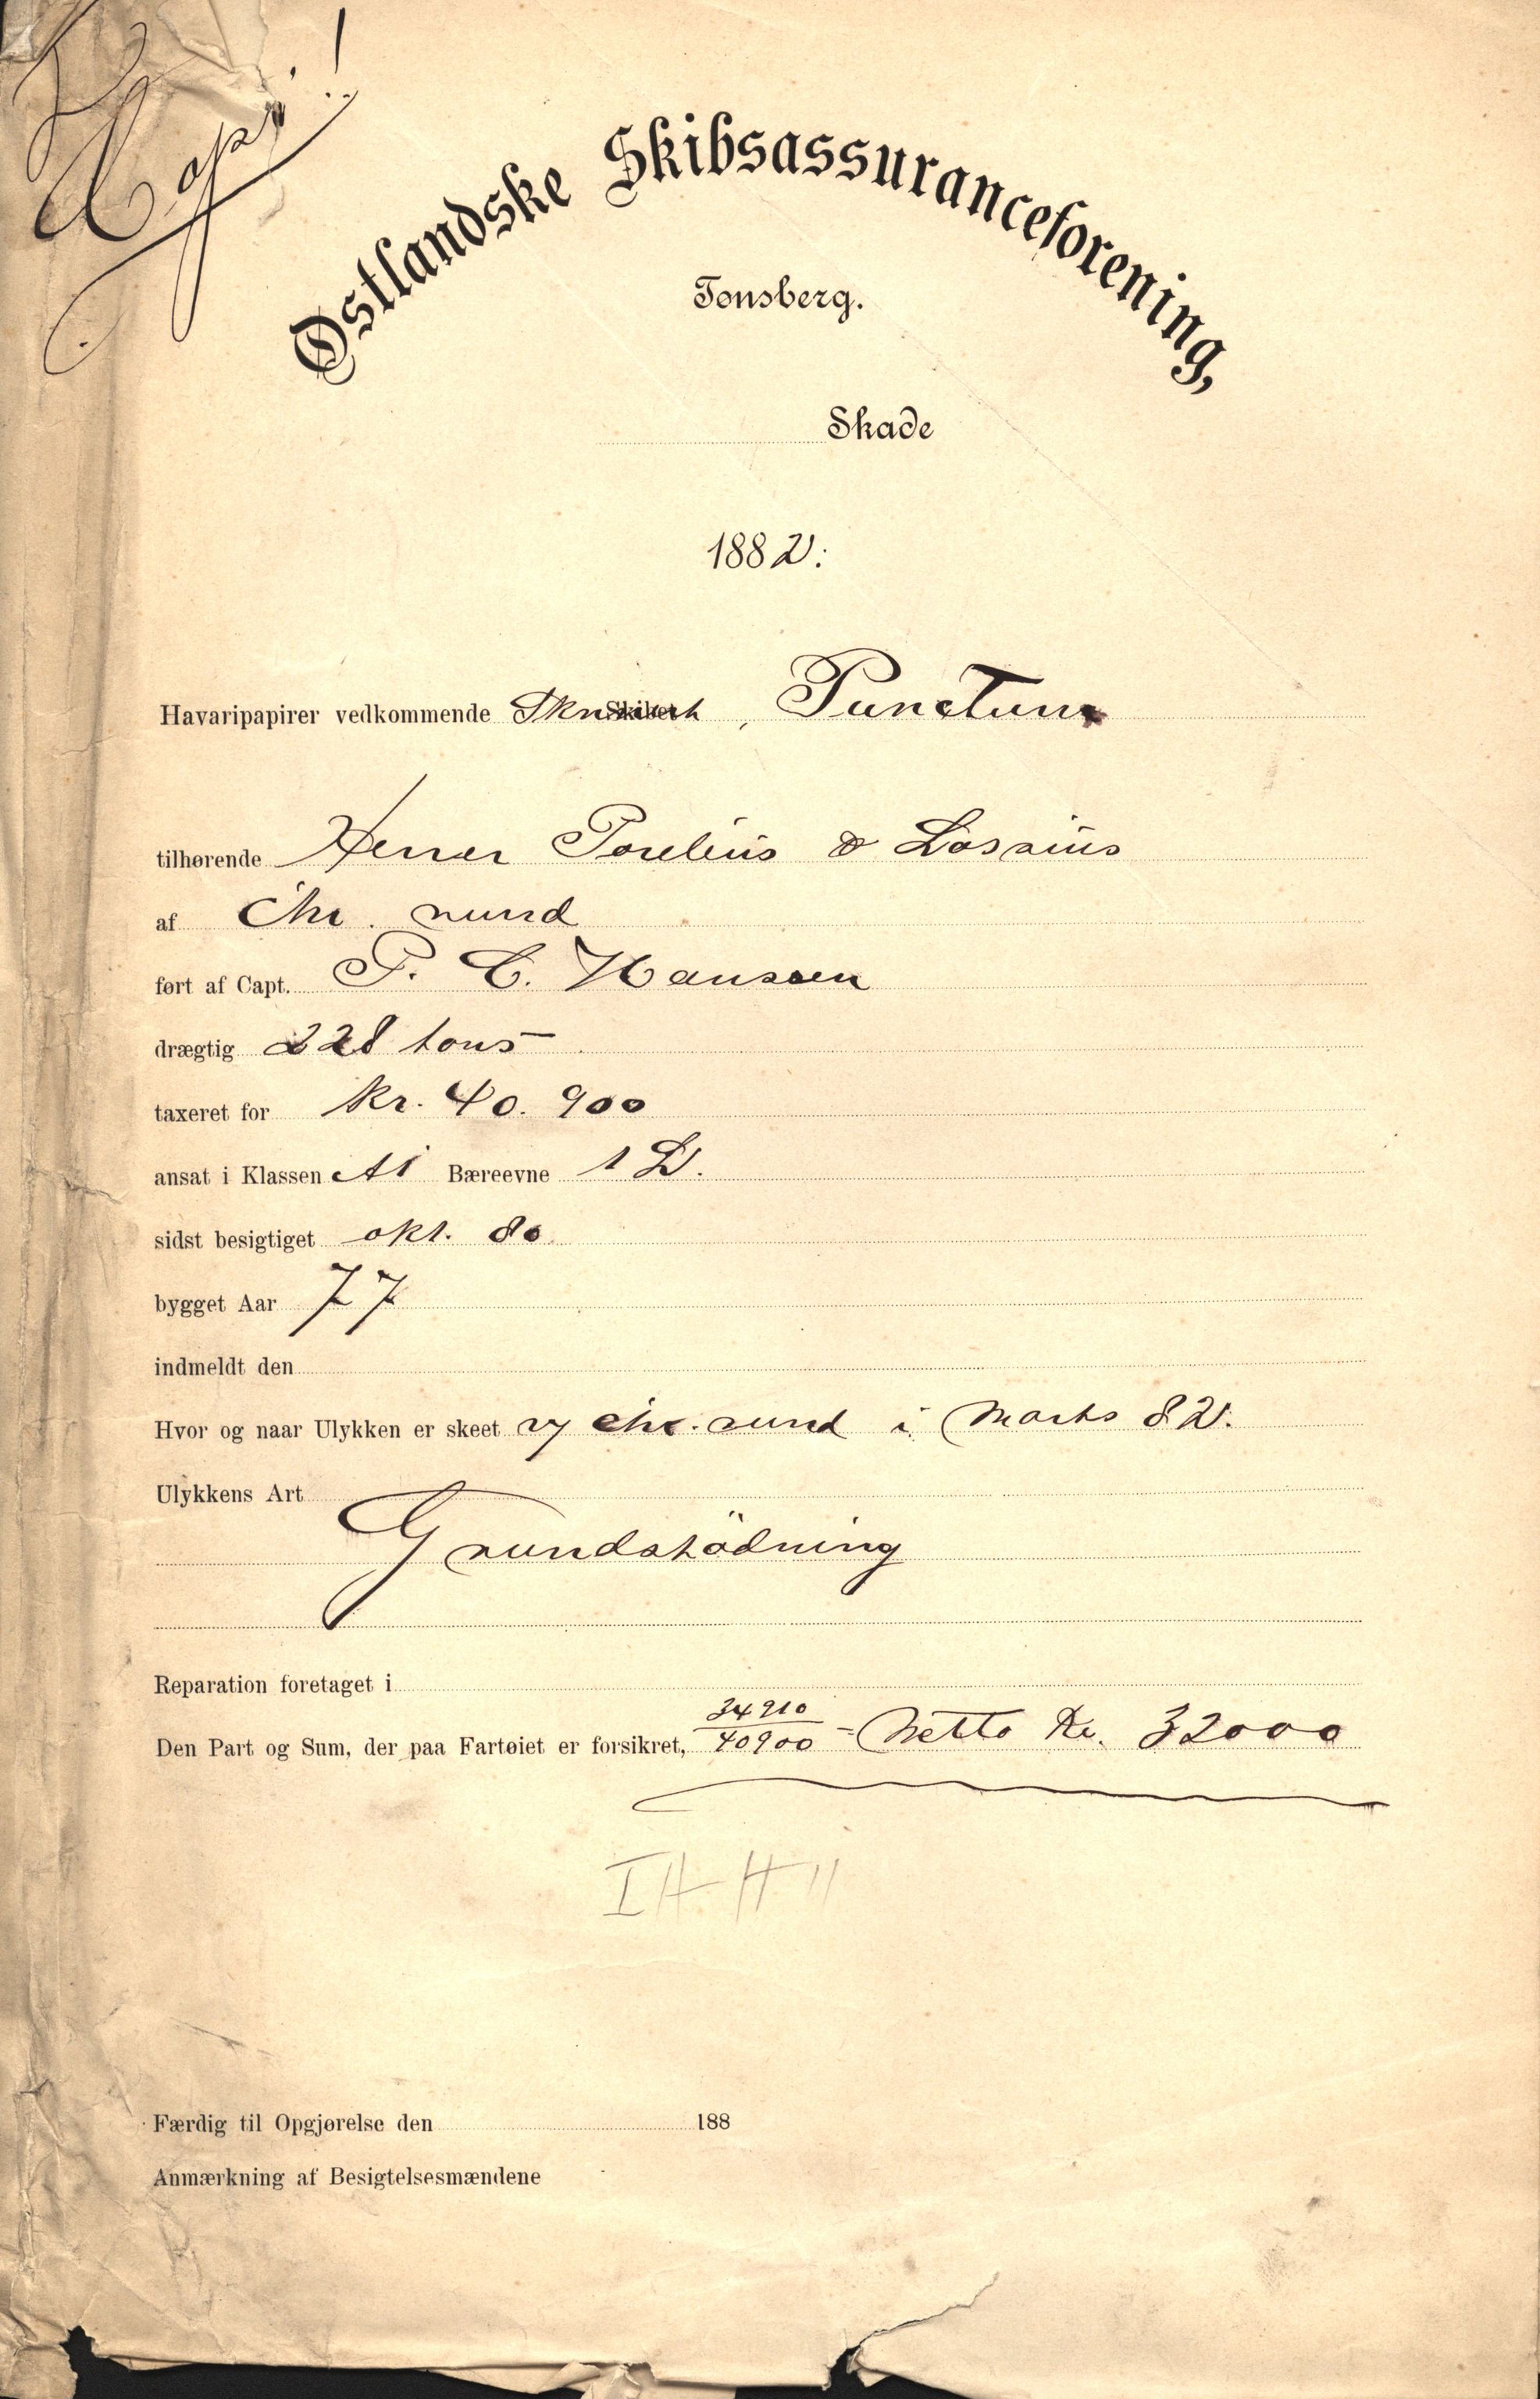 Copi!
Østlandske Skibsassuranceforening,
Tønsberg.
Skade
1882:
Havaripapirer vedkommende Skibet, Punctum
tilhørende Herrer Parelius & Lossius
af Chr. sund
ført af Capt. P. C. Hansen
drægtig 228 tons
taxeret for kr. 40.900
ansat i Klassen A1 Bæreevne 1 D.
sidst besigtiget okt. 80
bygget Aar 77
indmeldt den
Hvor og naar Ulykken er skeet v/ chr. sund i Marts 82.
Ulykkens Art
Grundstödning
Reparation foretaget i
Den Part og Sum, der paa Fartøiet er forsikret, 34910/40900 = Netto Kr. 32000
Færdig til Opgjørelse den 188
Anmærkning af Besigtelsesmændene